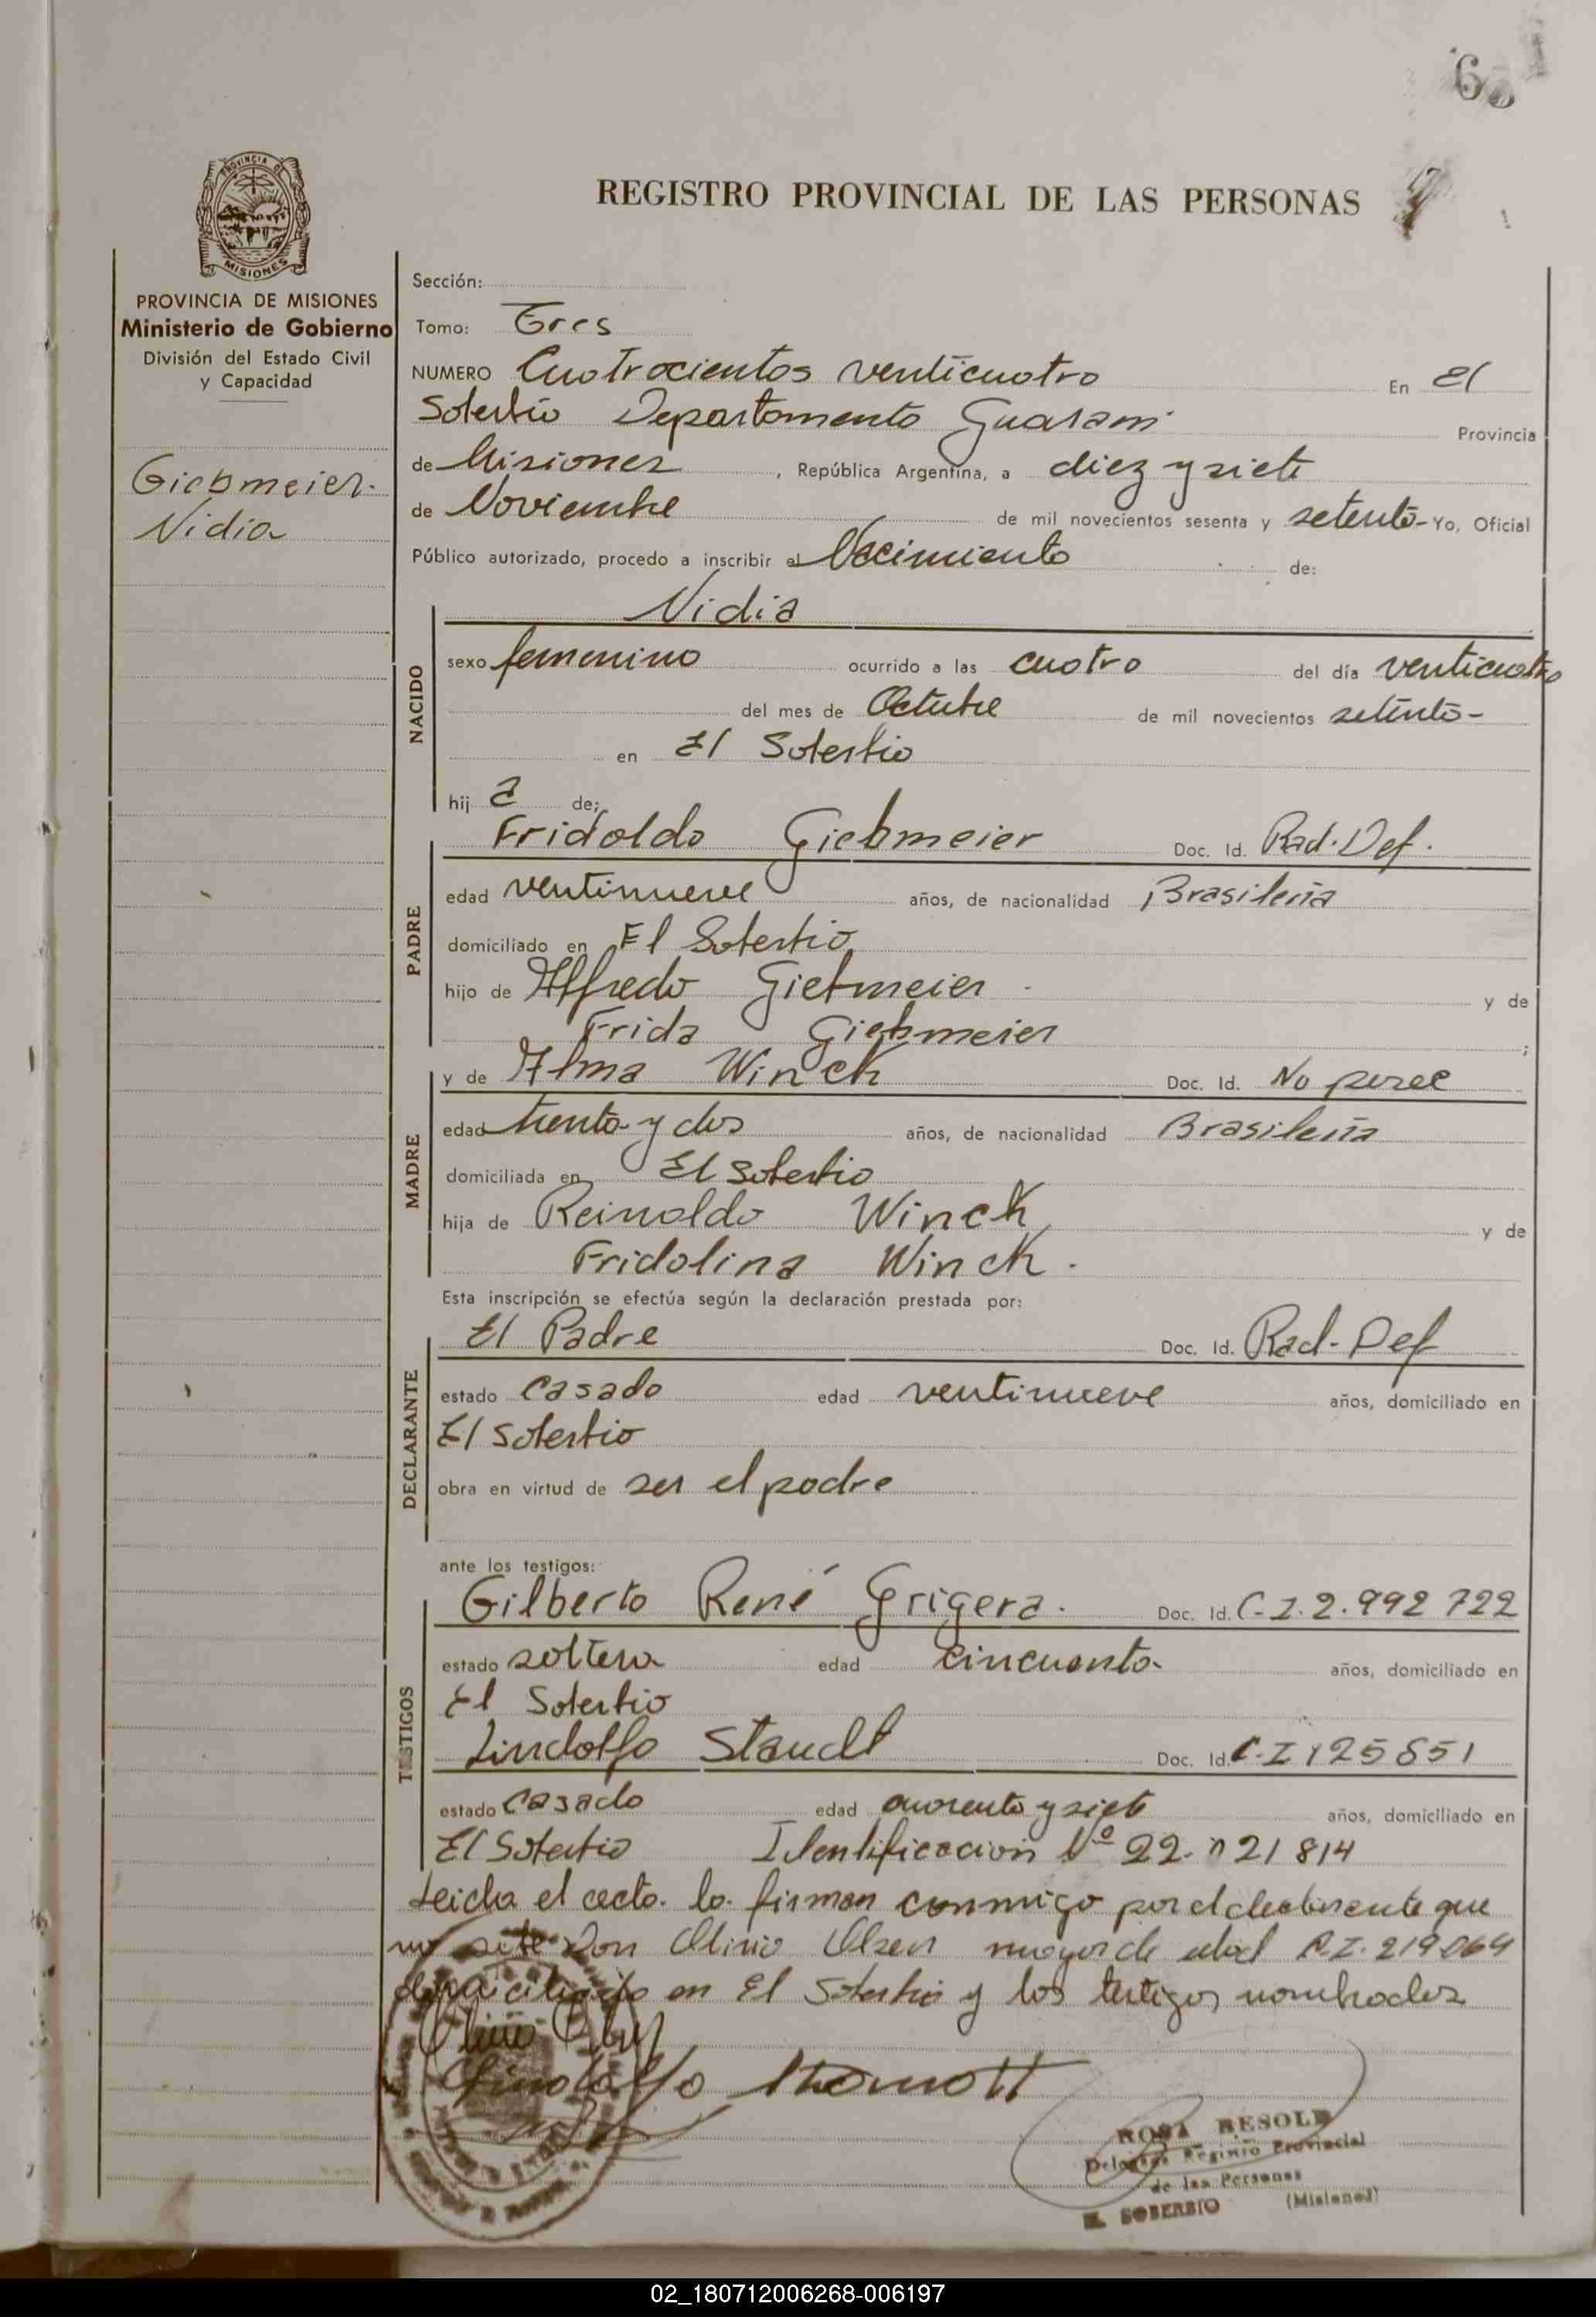 REGISTRO PROVINCIAL DE LAS PERSONAS
PROVINCIA DE MISIONES
Ministerio de Gobierno
División del Estado Civil
y Capacidad
Giebmeier.
Nidia
Sección:
Tomo: Tres
NUMERO Cuatrocientos venticuatro En El
Soberbio Departamento Guarani Provincia
de Misiones, República Argentina, a diez y siete
de Noviembre de mil novecientos sesenta y setenta- Yo, Oficial
Público autorizado, procedo a inscribir el Nacimiento de:
Nidia
NACIDO
sexo femenino ocurrido a las cuatro del día venticuatro
del mes de Octubre de mil novecientos setenta-
en El Soberbio
hij a de:
Fridoldo Giebmeier Doc. Id. Rad. Def.
PADRE
edad ventinueve años, de nacionalidad Brasileña
domiciliado en El Soberbio
hijo de Alfredo Giebmeier y de
Frida Giebmeier ;
y de Alma Winck Doc. Id. No posee
MADRE
edad treinta y dos años, de nacionalidad Brasileña
domiciliada en El Soberbio
hija de Reinoldo Winck y de
Fridolina Winck.
Esta inscripción se efectúa según la declaración prestada por:
El Padre Doc. Id. Rad. Def
DECLARANTE
estado casado edad ventinueve años, domiciliado en
El Soberbio
obra en virtud de ser el padre
ante los testigos:
Gilberto René Grigera. Doc. Id. C.I. 2.992 722
TESTIGOS
estado soltero edad cincuenta años, domiciliado en
El Soberbio
Lindolfo Staudt Doc. Id. C.I 125851
estado casado edad cuarenta y siete años, domiciliado en
El Soberbio Identificacion Nº 22.021814
Leida el acta la firman conmigo por el declarante que
no Don Olinio Olsen mayor de edad C.I. 219064
domiciliado en El Soberbio y los testigos nombrados
ROSA BESOLD
Delegada Registro Provincial
de las Personas
EL SOBERBIO (Misiones)
02_180712006268-006197